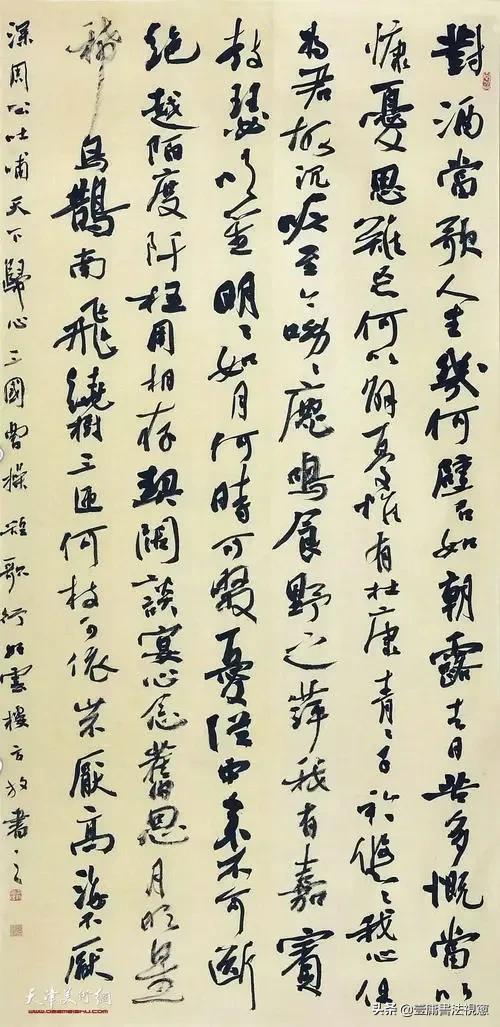 對酒當歌人生幾何譬如朝露去日苦多慨當以
慷憂思難忘何以解憂惟有杜康青々子衿悠々我心但
為君故沉吟至今呦々鹿鳴食野之萍我有嘉賓
鼓瑟吹笙明々如月何時可掇憂從中來不可斷
絕越陌度阡枉用相存契闊談宴心念舊恩月明星
稀烏鵲南飛繞樹三匝何枝可依山不厭高海不厭
深周公吐哺天下歸心三國曹操短歌行雲樓方放書
天津美術網
头条 @壹庸書法視窻